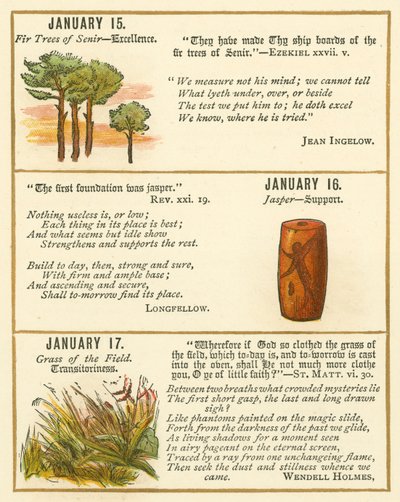 JANUARY 15.
Fir Trees of Senir—Excellence.
"They have made Thy ship boards of the
fir trees of Senir."—EZEKIEL xxvii. v.
"We measure not his mind; we cannot tell
What lyeth under, over, or beside
The test we put him to; he doth excel
We know, where he is tried."
JEAN INGELOW.
"The first foundation was jasper."
REV. xxi. 19.
Nothing useless is, or low;
Each thing in its place is best;
And what seems but idle show
Strengthens and supports the rest.
Build to day, then, strong and sure,
With firm and ample base;
And ascending and secure,
Shall to-morrow find its place.
LONGFELLOW.
JANUARY 16.
Jasper—Support.
JANUARY 17.
Grass of the Field.
Transitoriness.
"Wherefore if God so clothed the grass of
the field, which to-day is, and to-morrow is cast
into the oven, shall He not much more clothe
you, O ye of little faith?"—ST. MATT. vi. 30.
Between two breaths what crowded mysteries lie
The first short gasp, the last and long drawn
sigh?
Like phantoms painted on the magic slide,
Forth from the darkness of the past we glide,
As living shadows for a moment seen
In airy pageant on the eternal screen,
Traced by a ray from one unchangeing flame,
Then seek the dust and stillness whence we
came. WENDELL HOLMES,